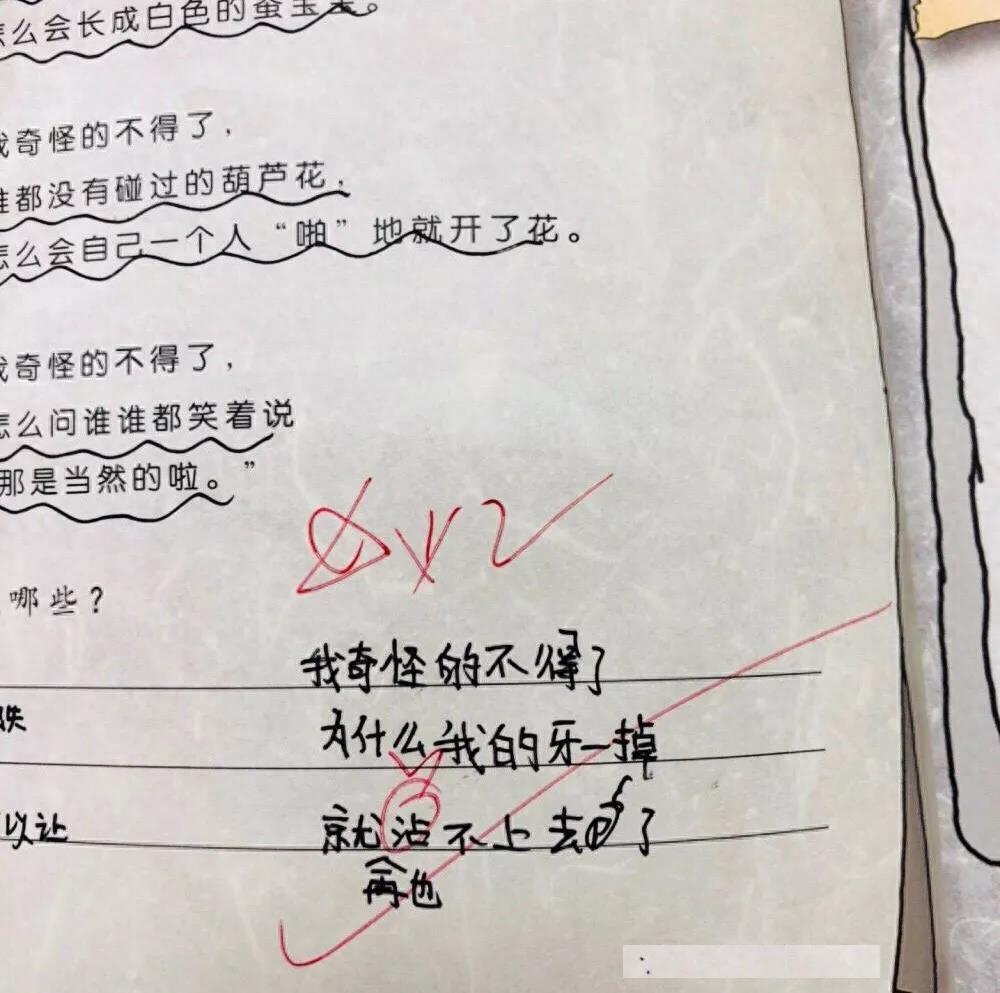 怎么会长成白色的蚕宝宝。
我奇怪的不得了，
谁都没有碰过的葫芦花，
怎么会自己一个人“啪”地就开了花。
我奇怪的不得了，
怎么问谁谁都笑着说
那是当然的啦。”
哪些？
我奇怪的不得了
为什么我的牙一掉
就沾不上去了
再也
以让